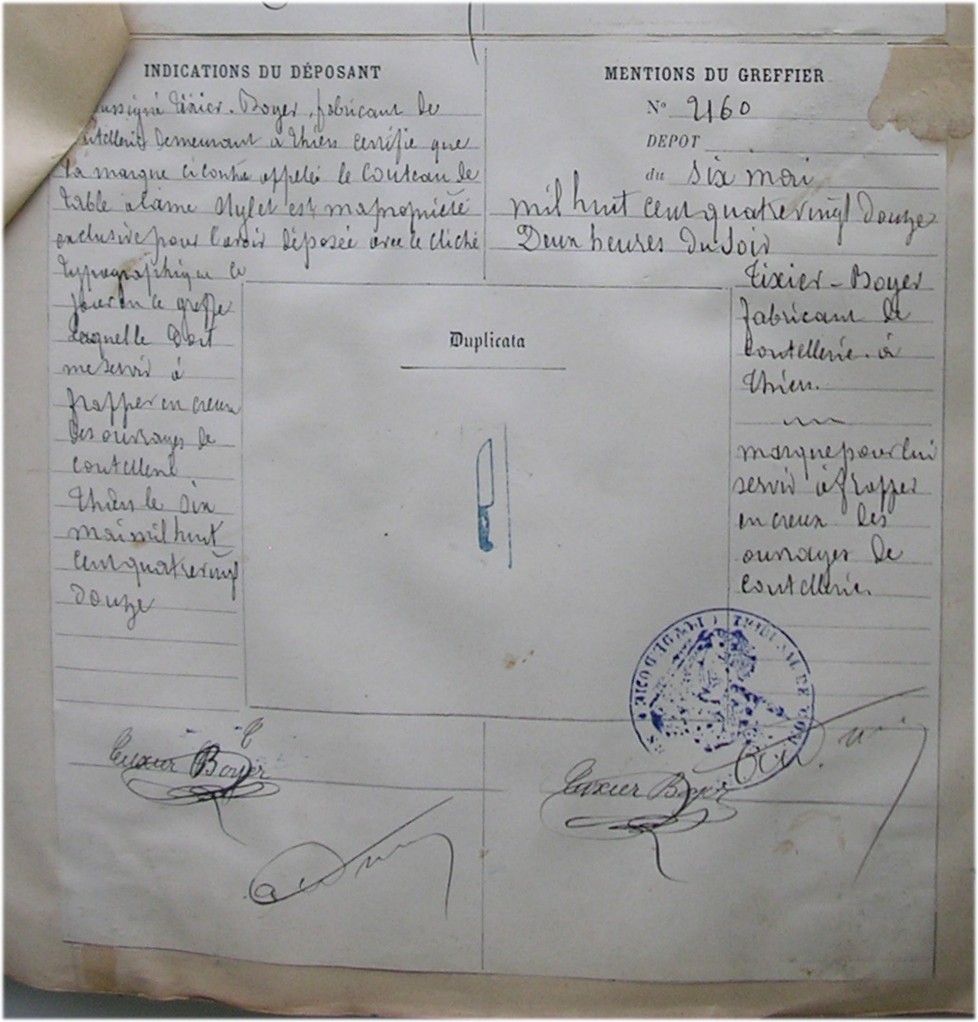 INDICATIONS DU DÉPOSANT
Tixier-Boyer, fabricant de
coutellerie Demeurant à Thiers certifie que
la marque ci contre appelée le Couteau de
table à lame Stylet est ma propriété
exclusive pour l'avoir déposée avec le cliché
typographique ce
jour en ce greffe
laquelle Doit
me servir à
frapper en creux
des ouvrages de
coutellerie
Thiers le six
mai mil huit
cent quatre vingt
Douze
Duplicata
MENTIONS DU GREFFIER
N° 2160
DEPOT
du six mai
mil huit cent quatre vingt Douze
Deux heures Du Soir
Tixier-Boyer
fabricant de
coutellerie à
Thiers.
marque pour lui
servir à frapper
en creux des
ouvrages de
coutellerie
TRIBUNAL DE COM
Tixier Boyer
Tixier Boyer